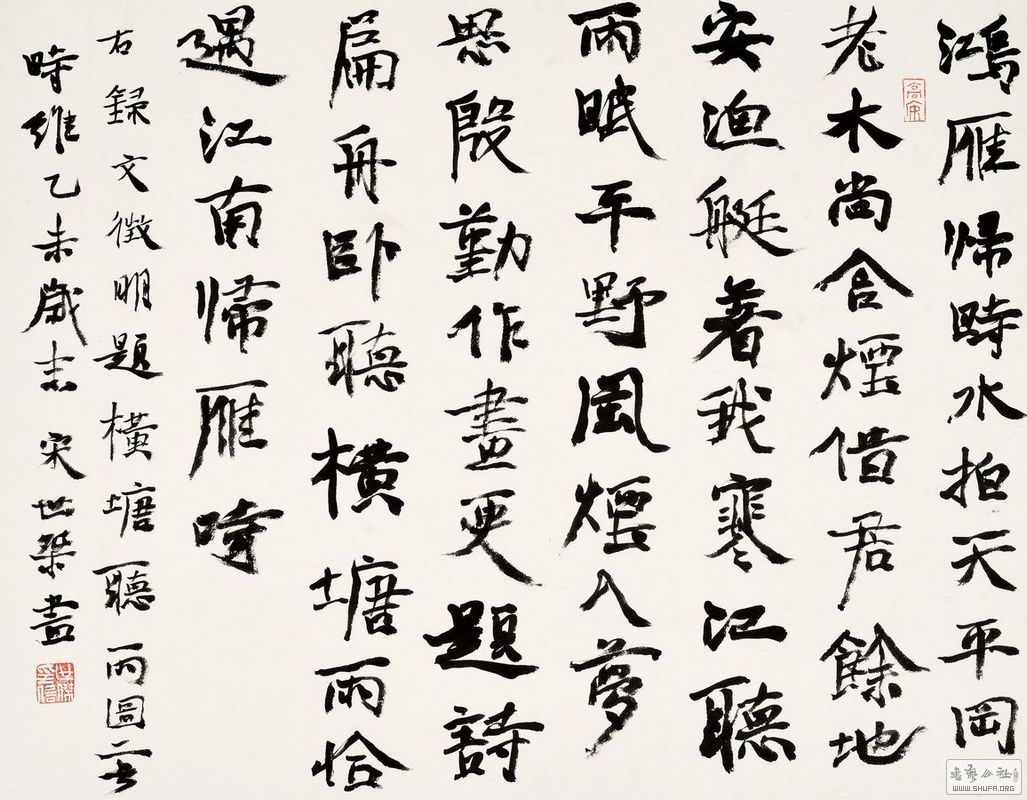 鴻雁歸時水拍天平岡
老木尚含煙借君餘地
安漁艇著我寒江聽
雨眠平野風煙入夢
思殷勤作畫更題詩
扁舟卧聽橫塘雨恰
遇江南歸雁時
右録文徵明題橫塘聽雨圖
時維乙未歲 宋世桀書
高安
公社
WWW.SHUFA.ORG